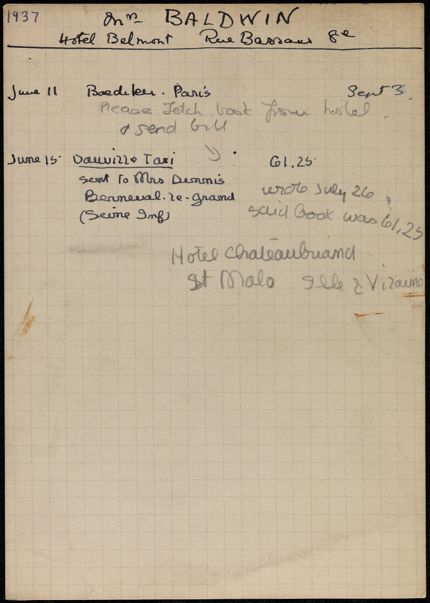 1937 Mrs BALDWIN
Hotel Belmont Rue Bassano 8e
June 11 Baedeker. Paris Sept 3.
Please fetch book from hotel.
& send bill
June 15. Taxi 61,25.
sent to Mrs Dennis
Berneval-le-Grand
(Seine Inf)
wrote July 26,
said book was 61,25
Hotel Chateaubriand
St Malo Ille & Vilaine